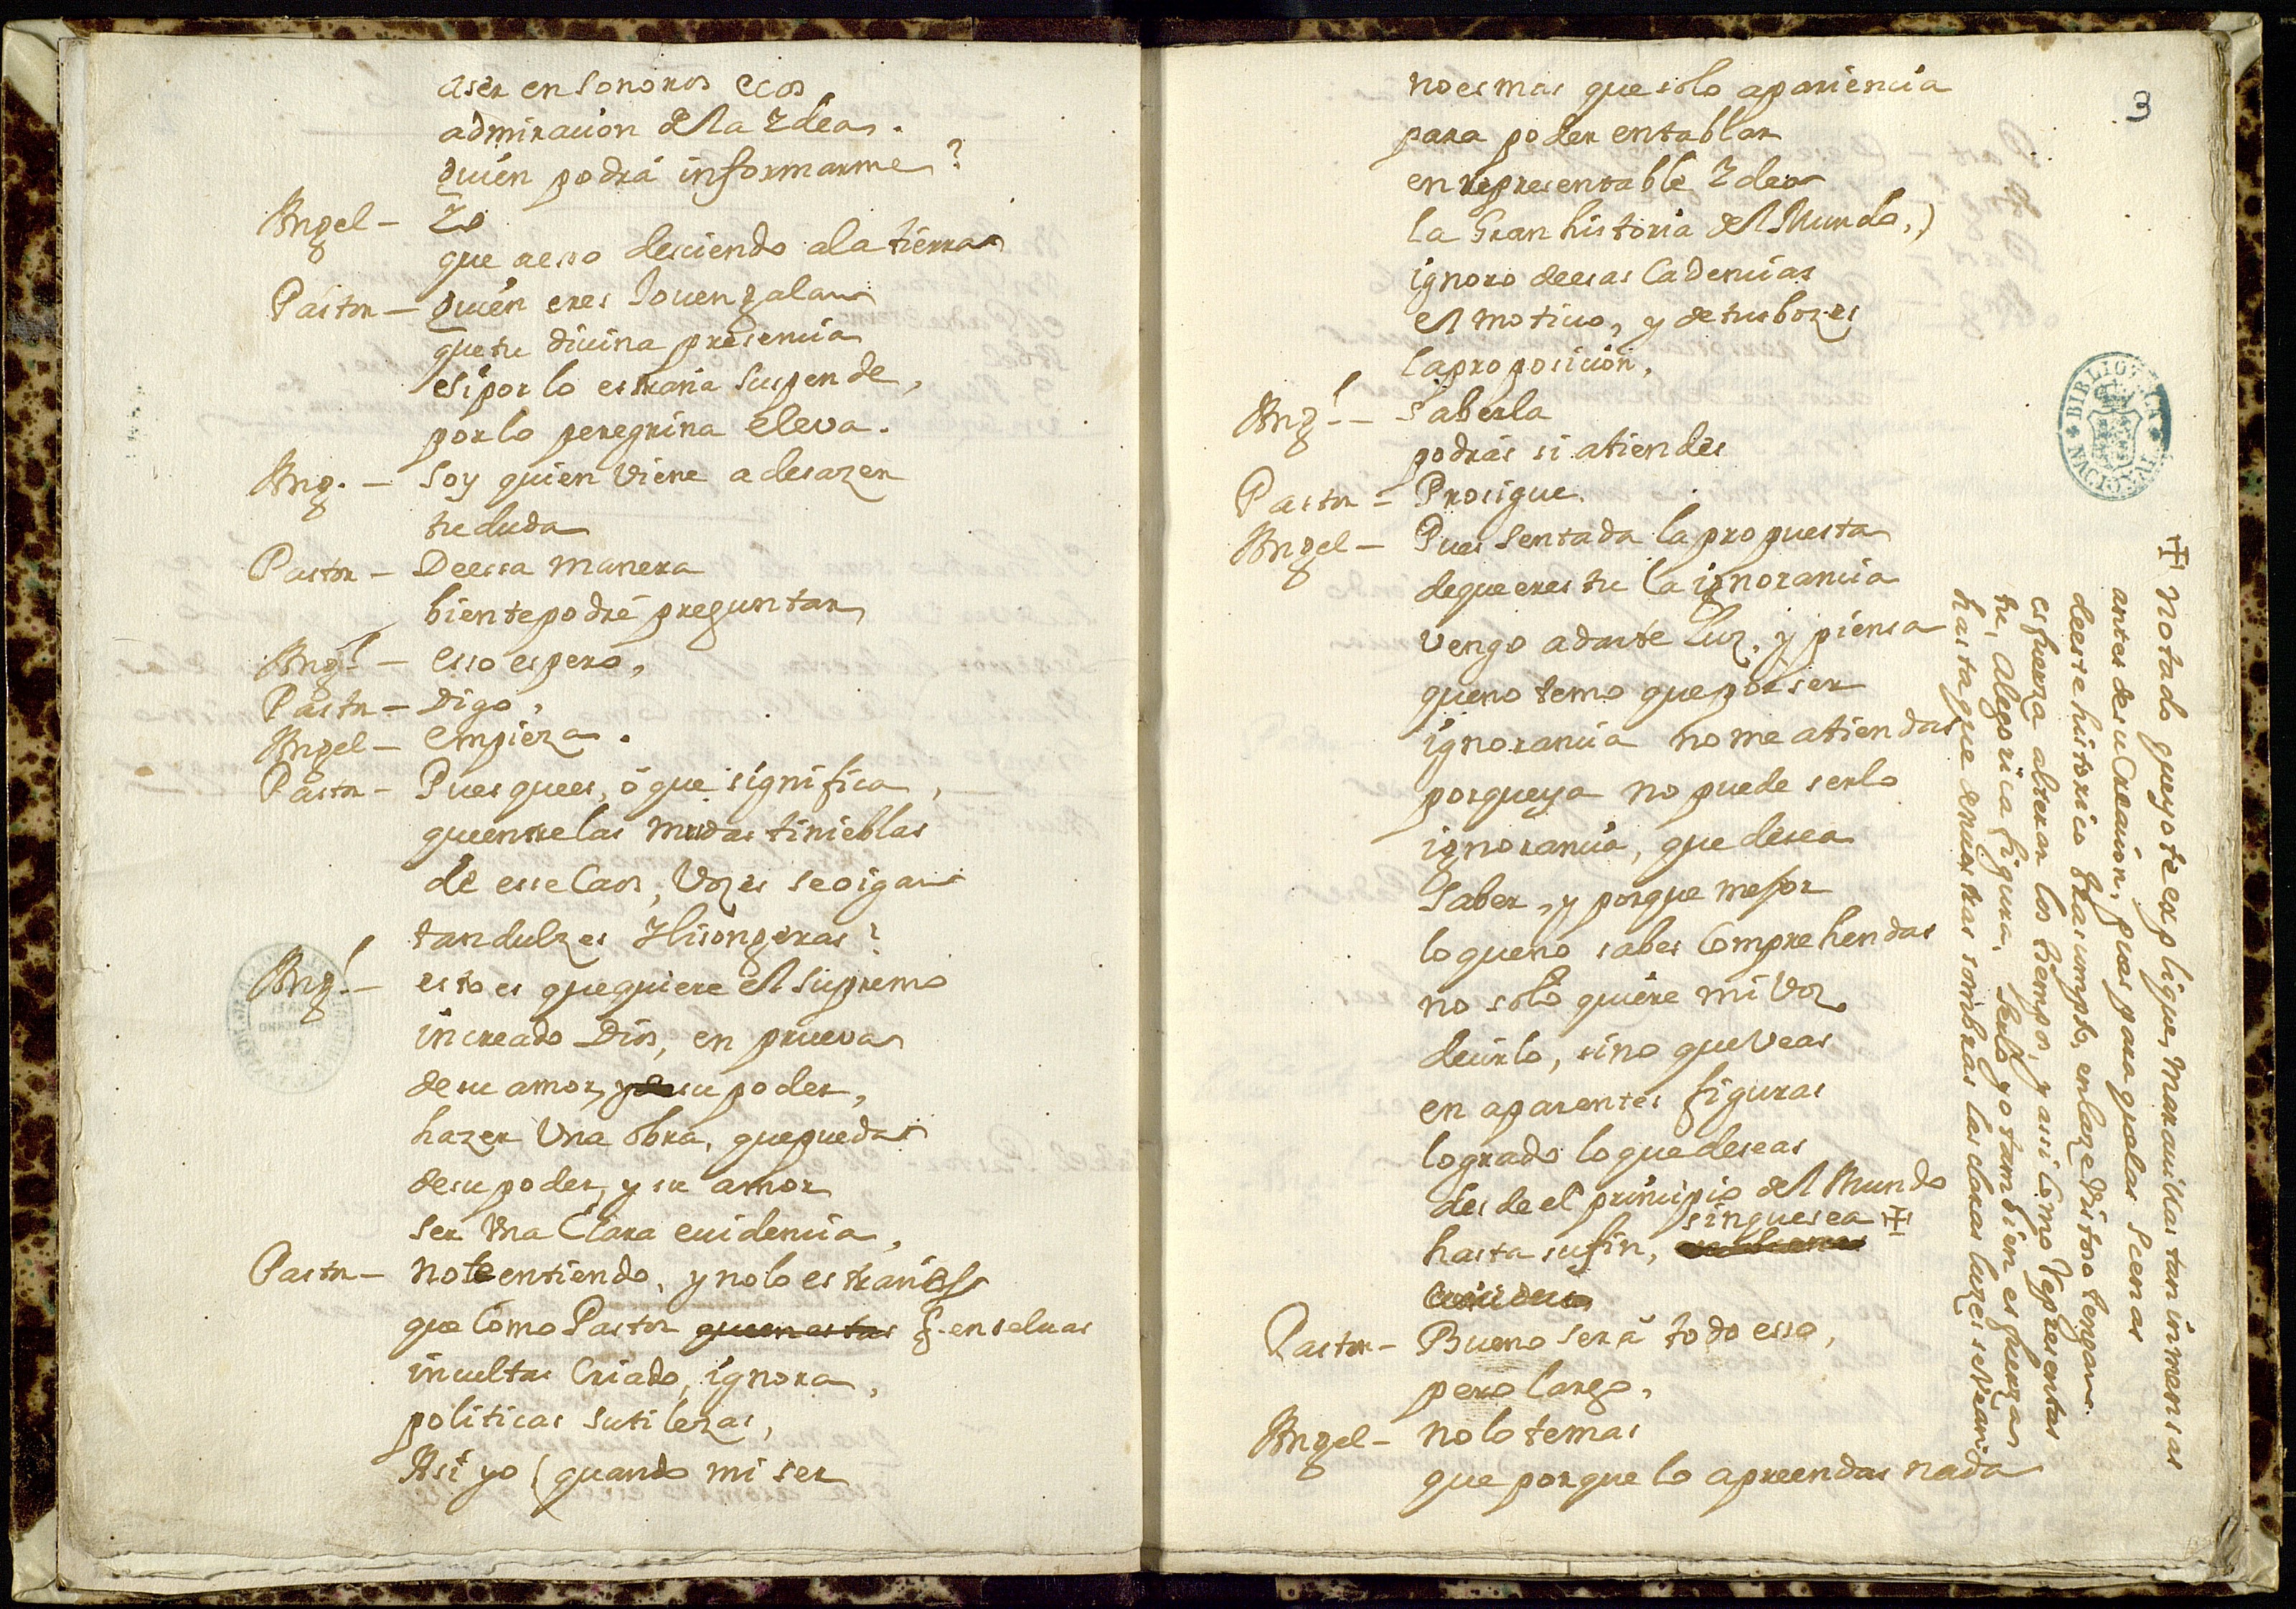 aser en sonoros ecos
admiracion de la Idea.
quién podrá informarme?
Angel – Yo
que aesso desciendo ala tierra
Pastor – quién eres Joven galan
que tu divina presencia
si por lo estraña suspende,
por lo peregrina eleva.
Ang. – Soy quien viene a desazer
tu duda
Pastor – Deessa manera
bien te podré preguntar
Angl – esso espero,
Pastr – Digo,
Angel – empieza.
Pastor – Pues que es, ó que significa,
que entre las mudas tinieblas
de esse Caos, Vozes se oigan
tan dulzes y lisongeras?
Angl – esto es que quiere el supremo
increado Dios, en prueva
de su amor, y su poder,
hazer Una obra, que pueda
de su poder, y su amor
ser Una Clara evidencia,
Pastr – No te entiendo, y no lo estrañes
que como Pastor que en estas q. en selvas
incultas Criado, ignora,
politicas sutilezas,
Asi yo (quando mi ser
3
no es mas que solo apariencia
para poder entablar
en representable Idea
la Gran historia del Mundo,)
ignoro deesas Cadencias
el motivo, y de tus bozes
la proposición,
Angl – Saberla
podrás si atiendes
Pastor – Prosigue.
Angel – Pues sentada la propuesta
de que eres tu la ignorancia
vengo a darte luz, y piensa
que no temo que por ser
ignorancia no me atiendas
porque ya no puede serlo
ignorancia, que desea
Saber, y porque mejor
lo que no sabes Comprehendas
no solo quiere mi Voz
decirlo, sino que Veas
en aparentes figuras
logrado lo que deseas
desde el principio del Mundo
sin que sea ✠
hasta su fin,
Pastor – Bueno será todo esso,
pero largo,
Angel – No lo temas
que porque lo apreendas nada
✠ Notado que yo te explique, Maravillas tan inmensas
antes de su Creacion, pues para que las Scenas
de este historico Assumpto, enlaze vistoso tengan.
es fuerza alterar los tiempos, y assi como representas
tu, Alegorica figura, serlo yo tambien es fuerza
hasta que de nuestras sombras las claras luzes se vean
BIBLIOTECA NACIONAL